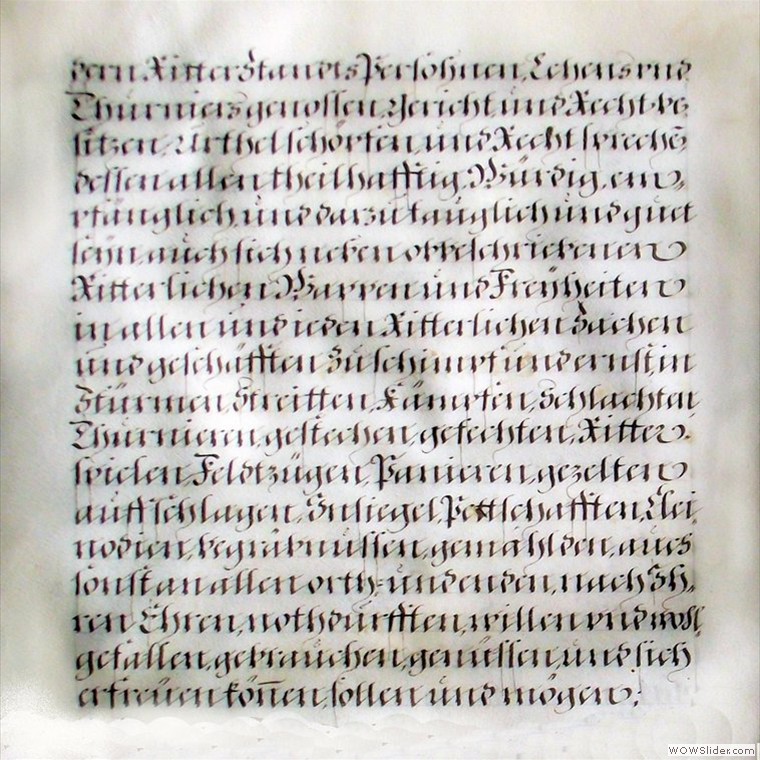 dern Ritter Standts Persohnen, Lehens vnd
Thurniers genossen, Gericht, und Recht be,
sitzen, Urthel schöpfen, und Recht sprechē,
dessen allen theilhafftig, Würdig, em,
pfänglich, und darzu tauglich und guet
sein, auch sich neben obbeschriebenen
Ritterlichen Wappen und Freÿheiten
in allen und ieden Ritterlichen Sachen
und geschäfften Zu schimpf und ernst, in
Stürmen, Streitten, Kämpfen, Schlachten
Thurnieren, gestechen, gefechten, Ritter,
spielen, Feldtzügen, Panieren, gezelten
auffschlagen, Insiegel, Pettschafften, Clei,
nodien, begräbnüssen, gemählden, auch
sonst an allen orth, und enden, nach Ih,
ren Ehren, nothdurfften, willen vnd wohl
gefallen, gebrauchen, genüssen, und sich
erfreuen können, sollen und mögen,
WOWSlider.com